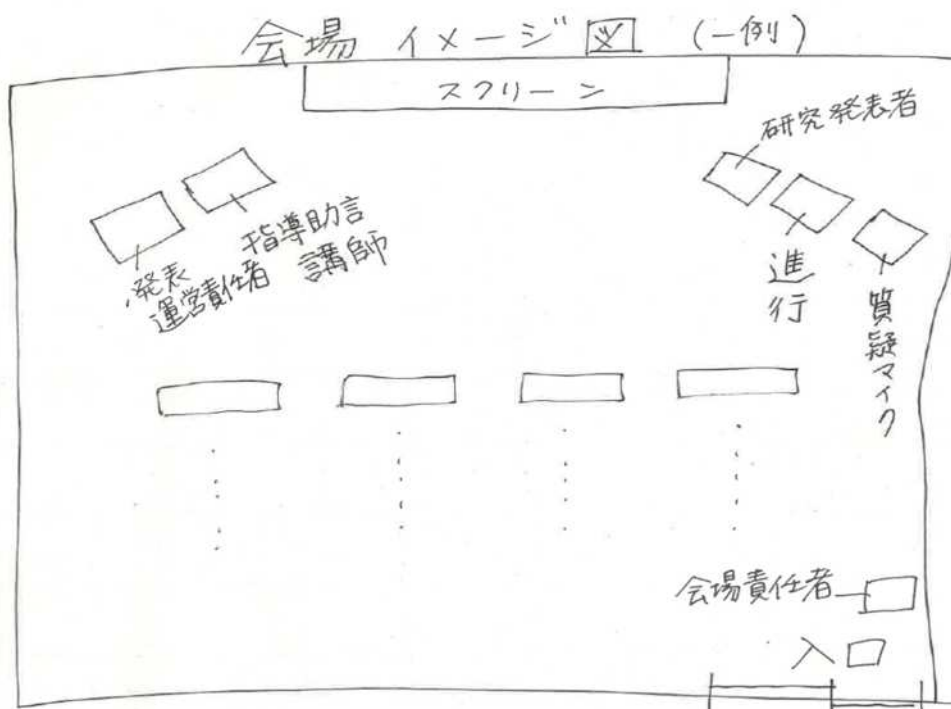 会場 イメージ図 (一例)
スクリーン
研究発表者
指導助言
講師
発表
運営責任者
進行
質疑マイク
会場責任者
入口